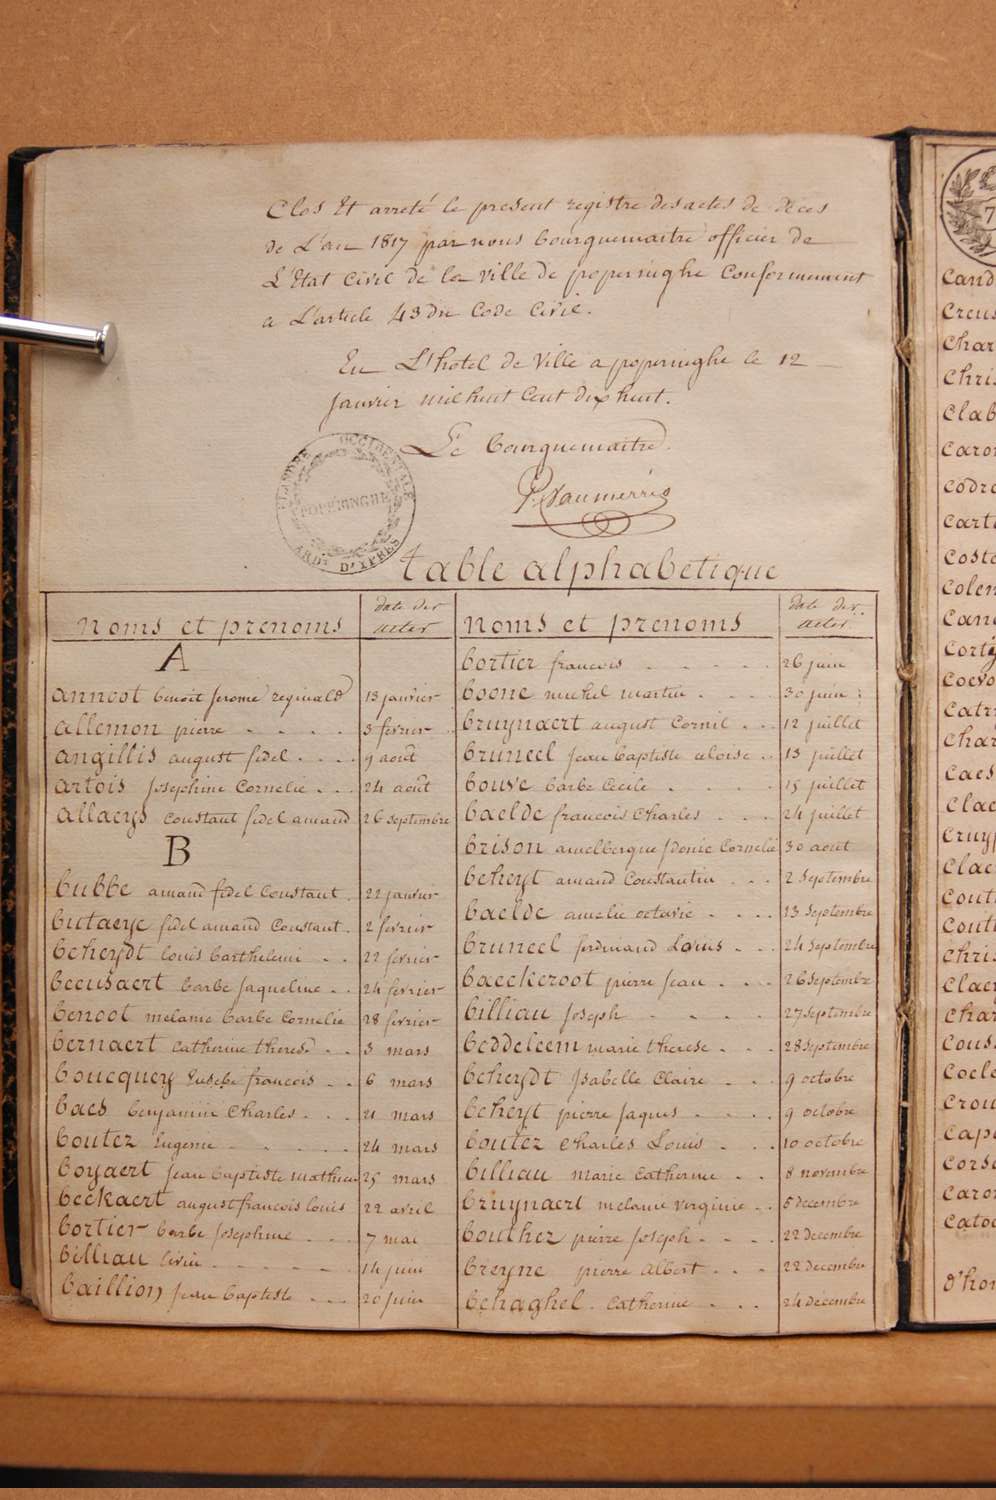 Clos Et arreté le present registre des actes de déces
de L'an 1817 par nous bourguemaitre officier de
L'Etat civil de la ville de poperinghe conformement
a L'article 43 du Code civil.
En L'hotel de ville a poperinghe le 12
janvier mil huit cent dix huit.
Le bourguemaitre
FLANDRE OCCIDENTALE
POPERINGHE
ARDT D'YPRES
table alphabetique
noms et prenoms
date des actes
A
annoot benoit jerome reginald 13 janvier
allemon pierre 3 fevrier
angillis august fidel 9 août
artois josephine Cornelie 24 août
allaeys constant fidel amand 26 septembre
B
bubbe amand fidel Constant 22 janvier
butaeye fidel amand Constant 2 fevrier
beheydt louis barthelemi 22 fevrier
beeusaert barbe jaqueline 24 fevrier
benoot melanie barbe Cornelie 28 fevrier
bernaert catherine therese 3 mars
boucquey Eusebe francois 6 mars
baes benjamin Charles 21 mars
boutez Eugenie 24 mars
boyaert jean baptiste mathieu 25 mars
beckaert august francois louis 22 avril
bortier barbe josephine 7 mai
billiau livin 14 juin
baillion jean baptiste 20 juin
noms et prenoms
date des actes
bortier francois 26 juin
boone michel martin 30 juin
bruynaert august Cornil 12 juillet
bruneel jean baptiste aloise 13 juillet
bouve barbe Cecile 15 juillet
baelde francois Charles 24 juillet
brison amelbergue sdonie Cornelie 30 août
beheyt amand Constantin 2 Septembre
baelde amelie octavie 13 Septembre
bruneel ferdinand Louis 24 Septembre
baeckeroot pierre jean 26 Septembre
billiau joseph 27 Septembre
beddeleem marie therese 28 Septembre
beheydt Isabelle Claire 9 octobre
beheyt pierre jaques 9 octobre
boutez Charles Louis 10 octobre
billiau marie Catherine 8 novembre
bruynaert melanie virginie 5 decembre
bouthez pierre joseph 22 decembre
breyne pierre albert 22 decembre
behaghel Catherine 24 decembre
7
Cand
Creus
Char
Chris
Clab
Caron
Codro
Carte
Coste
Colen
Cano
Corty
Coevo
Catri
Char
Caes
Clae
Cruyp
Clae
Cout
Cout
Chris
Claey
Char
Couss
Coel
Crou
Cape
Corse
Caron
Catoe
d'hon